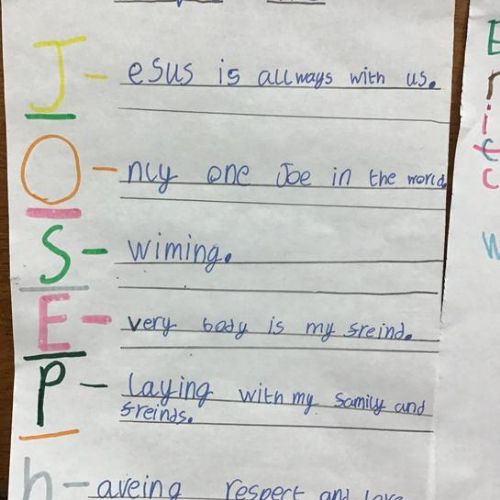 J - esus is allways with us.
O - nly one Joe in the world
S - wiming.
E - very body is my sreind.
P - laying with my samily and
sreinds.
h - aveing respect and love
E
r
i
c
W